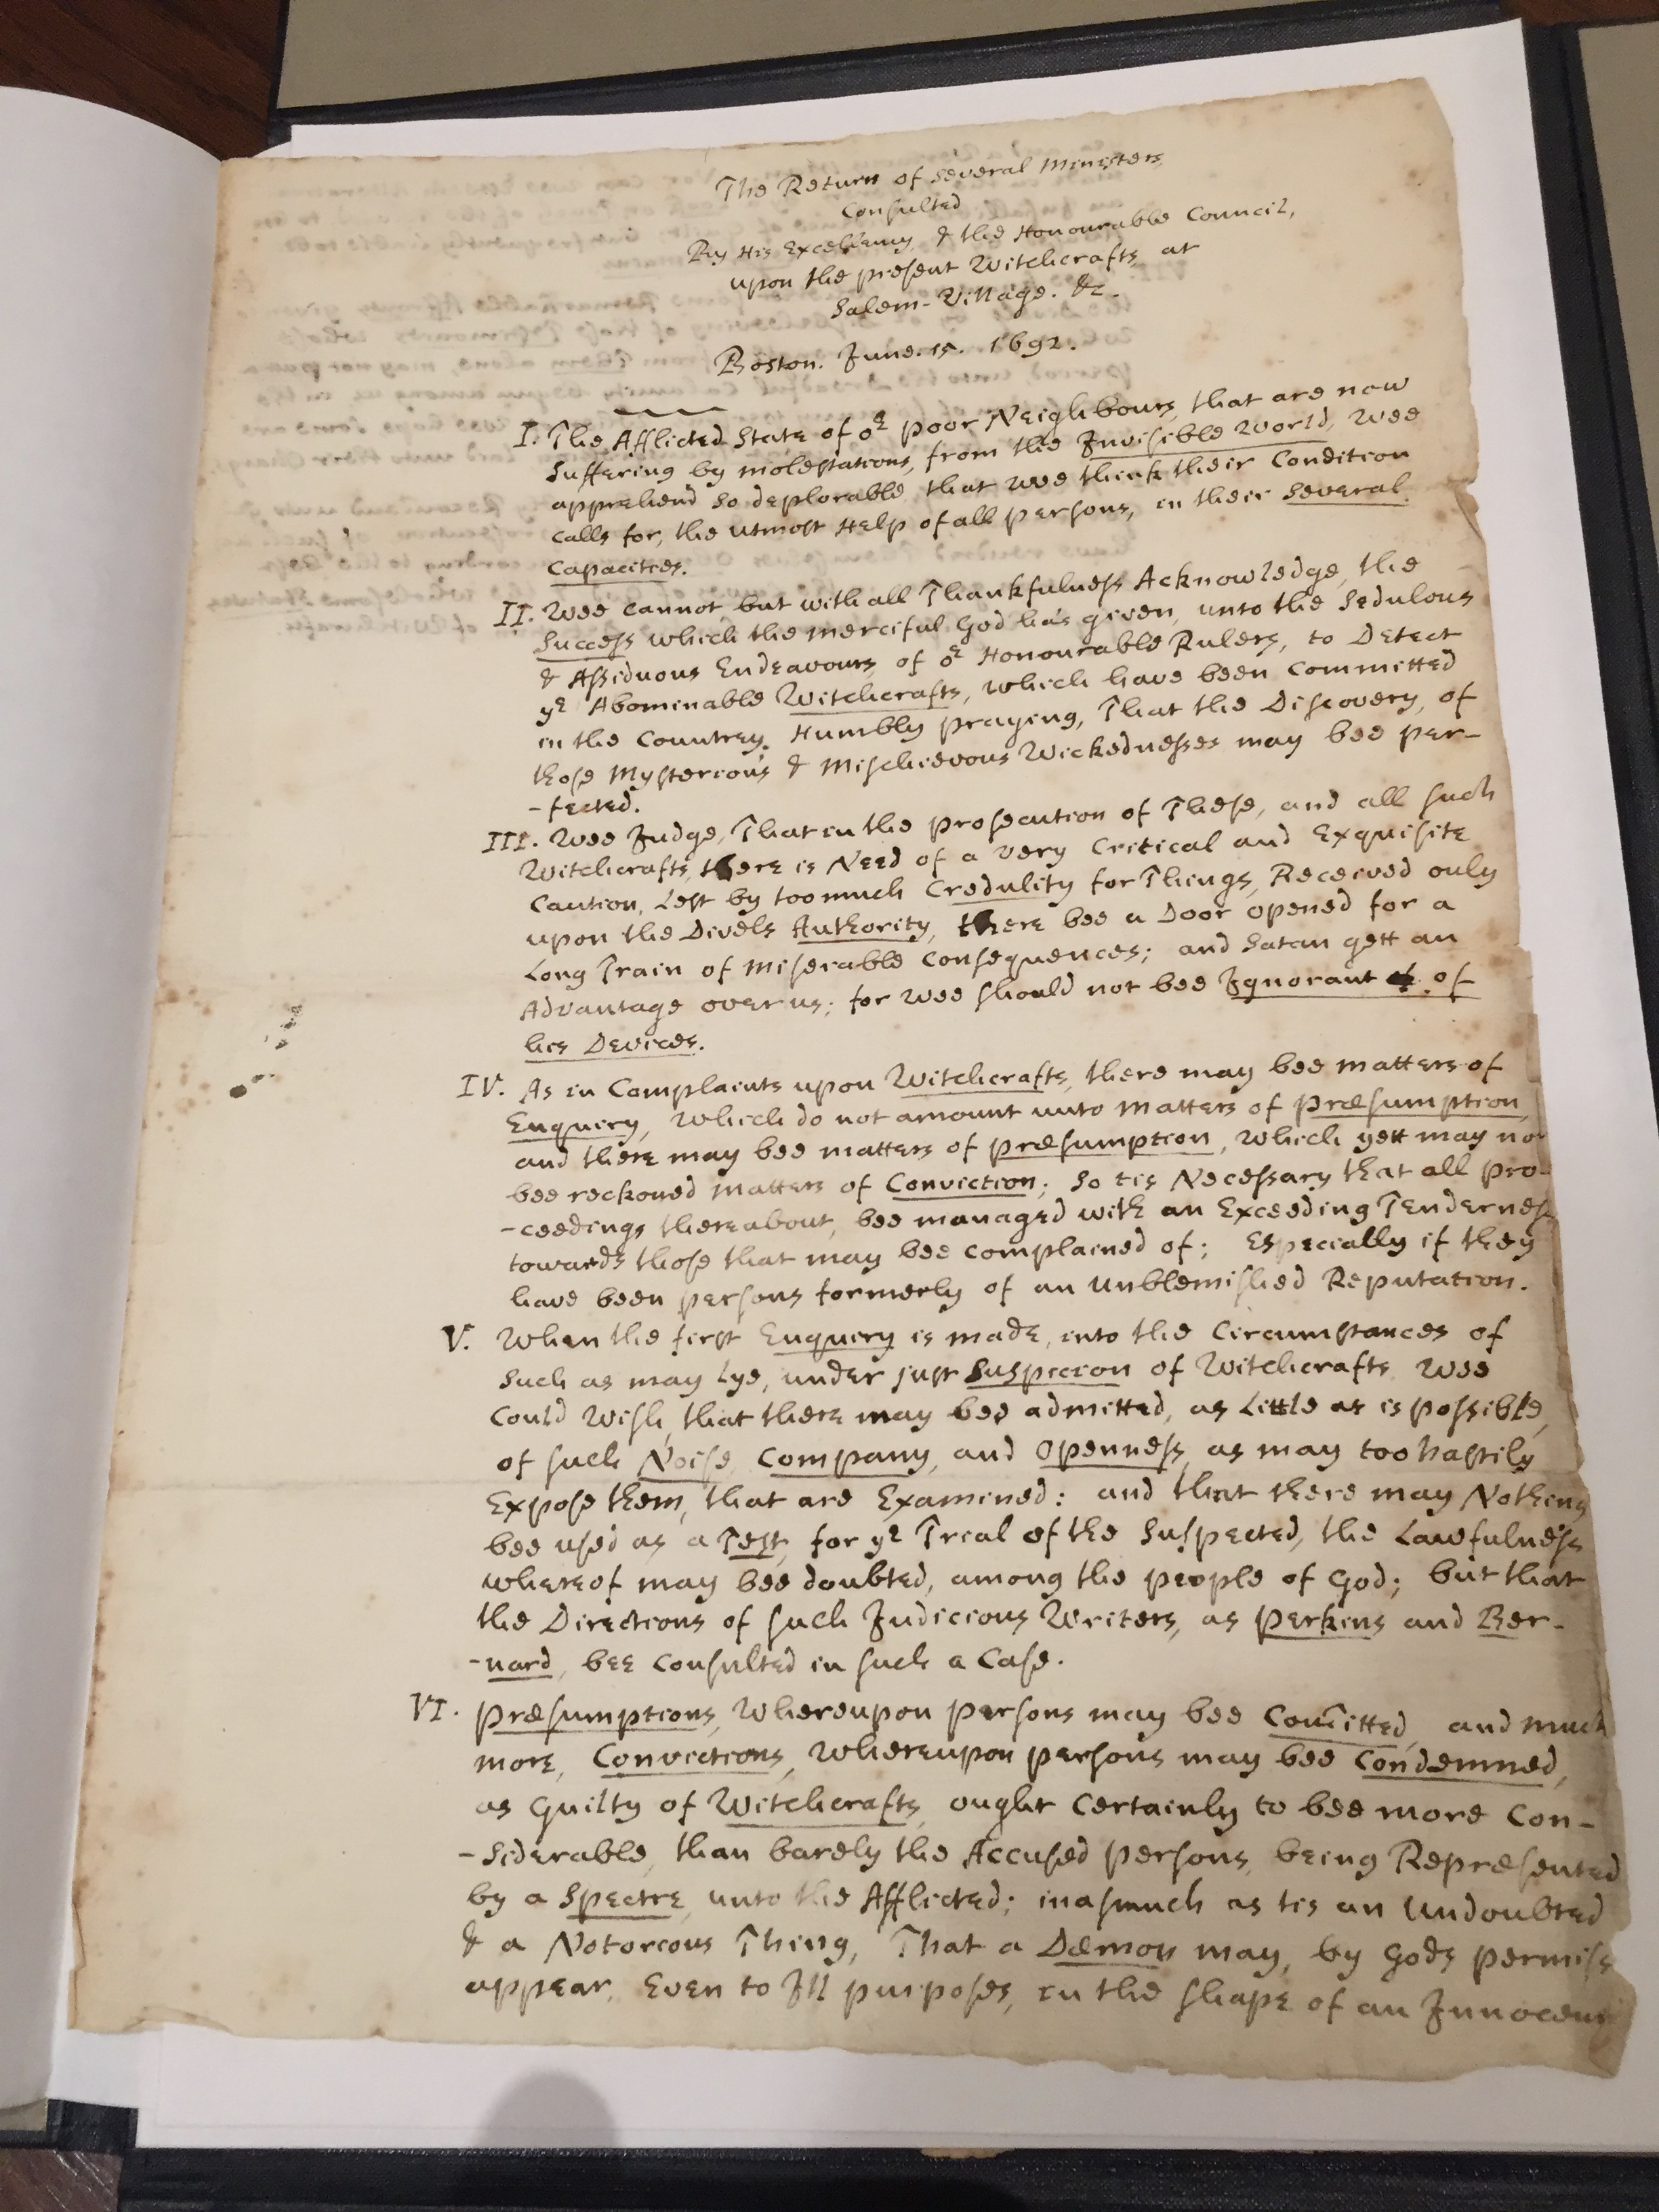 The Return of several Ministers
Consulted
By His Excellency, & the Honourable Council,
upon the present Witchcrafts, at
Salem-Village. &c.
Boston. June. 15. 1692.
I. The Afflicted State of oʳ poor Neighbours, that are now
suffering by molestations, from the Invisible World, wee
apprehend so deplorable, that wee think their Condition
calls for, the utmost Help of all persons, in their several
Capacities.
II. Wee cannot, but with all Thankfulness Acknowledge, the
Success which the merciful God has given, unto the Sedulous
& Assiduous Endeavours, of oʳ Honourable Rulers, to Detect
yᵉ Abominable Witchcrafts, which have been committed
in the Countrey. Humbly praying, That the Discovery, of
those Mysterious & Mischievous Wickednesses may bee per-
-fected.
III. Wee Judge, That in the prosecution of These, and all such
Witchcrafts, there is Need of a very Critical and Exquisite
Caution, Lest by too much Credulity for Things, Received only
upon the Divels Authority, there bee a Door opened for a
Long Train of Miserable Consequences; and Satan gett an
Advantage over us; for wee should not bee Ignorant of
his Devices.
IV. As in Complaints upon Witchcrafts, there may bee matters of
Enquiry, which do not amount unto Matters of Præsumption,
and there may bee matters of præsumption, which yett may no
bee reckoned matters of Conviction; So tis Necessary that all pro-
-ceedings thereabout, bee managed with an Exceeding Tenderness
towards those that may bee complained of; Especially if they
have been persons formerly of an unblemished Reputation.
V. When the first Enquiry is made, into the Circumstances of
such as may Lye, under just Suspicion of Witchcrafts, Wee
could Wish, that there may bee admitted, as Little as is possible,
of such Noise, Company, and Openness, as may too hastily
Expose them, that are Examined: and that there may Nothing
bee used as a Test, for yᵉ Trial of the Suspected, the Lawfulness
whereof may bee doubted, among the people of God; but that
the Directions of such Judicious Writers, as Perkins and Ber-
-nard, bee consulted in such a Case.
VI. Præsumptions, Whereupon persons may bee Com̃itted, and much
more, Convictions, Whereupon persons may bee Condemned,
as Guilty of Witchcrafts, ought Certainly to bee more Con-
-siderable, than barely the Accused persons, being Represented
by a Spectre, unto the Afflicted; inasmuch as tis an Undoubted
& a Notorious Thing, That a Dæmon may, by Gods permiss
appear, Even to Ill purposes, in the shape of an Innocent